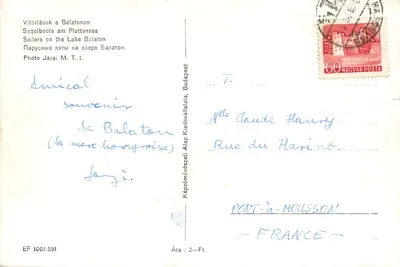 Vitorlások a Balatonon
Segelboote am Plattensee
Sailers on the Lake Balaton
Парусные яхты на озере Балатон.
Photo Járai M. T. I.
Amical
souvenir
de Balaton
(la mer hongroise)
Képzőművészeti Alap Kiadóvállalata, Budapest
T.
60
MAGYAR POSTA
Mlle Claude
Rue du
PONT-à-MOUSSON
- FRANCE -
EF 1001-591
Ára: 2-Ft.